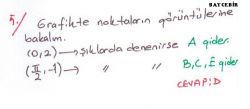 BAYCEBİR
5./ Grafikte noktaların görüntülerine
bakalım.
(0,2) → şıklarda denenirse A gider.
(π/2,-1) → " " B,C,E gider
CEVAP: D